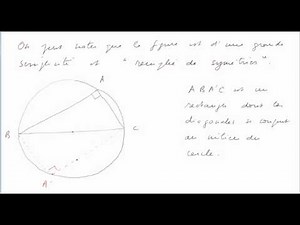 On peut noter que la figure est d'une grande
simplicité et "remplie de symétries".
A
B
C
A'
ABA'C est un
rectangle dont les
diagonales se coupent
au milieu du
cercle.